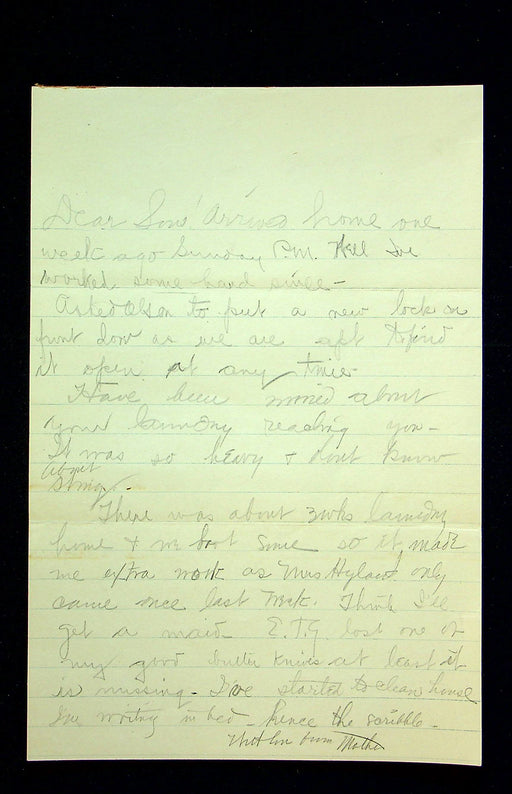 Dear Sons! Arrived home one
week ago Sunday P.M. Well I've
worked some hard since -
Asked Olsen to put a new lock on
front door as we are apt to find
it open at any time.
Have been worried about
your laundry reaching you -
It was so heavy & dont know
about
string.
There was about 3 wks laundry
home & we lost some so it made
me extra work as Mrs Hyland only
came once last week. Think I'll
get a maid. E.T.G. lost one of
my good butter knives at least it
is missing. I've started to clean house
I'm writing in bed - hence the scribble.
With love from Mother